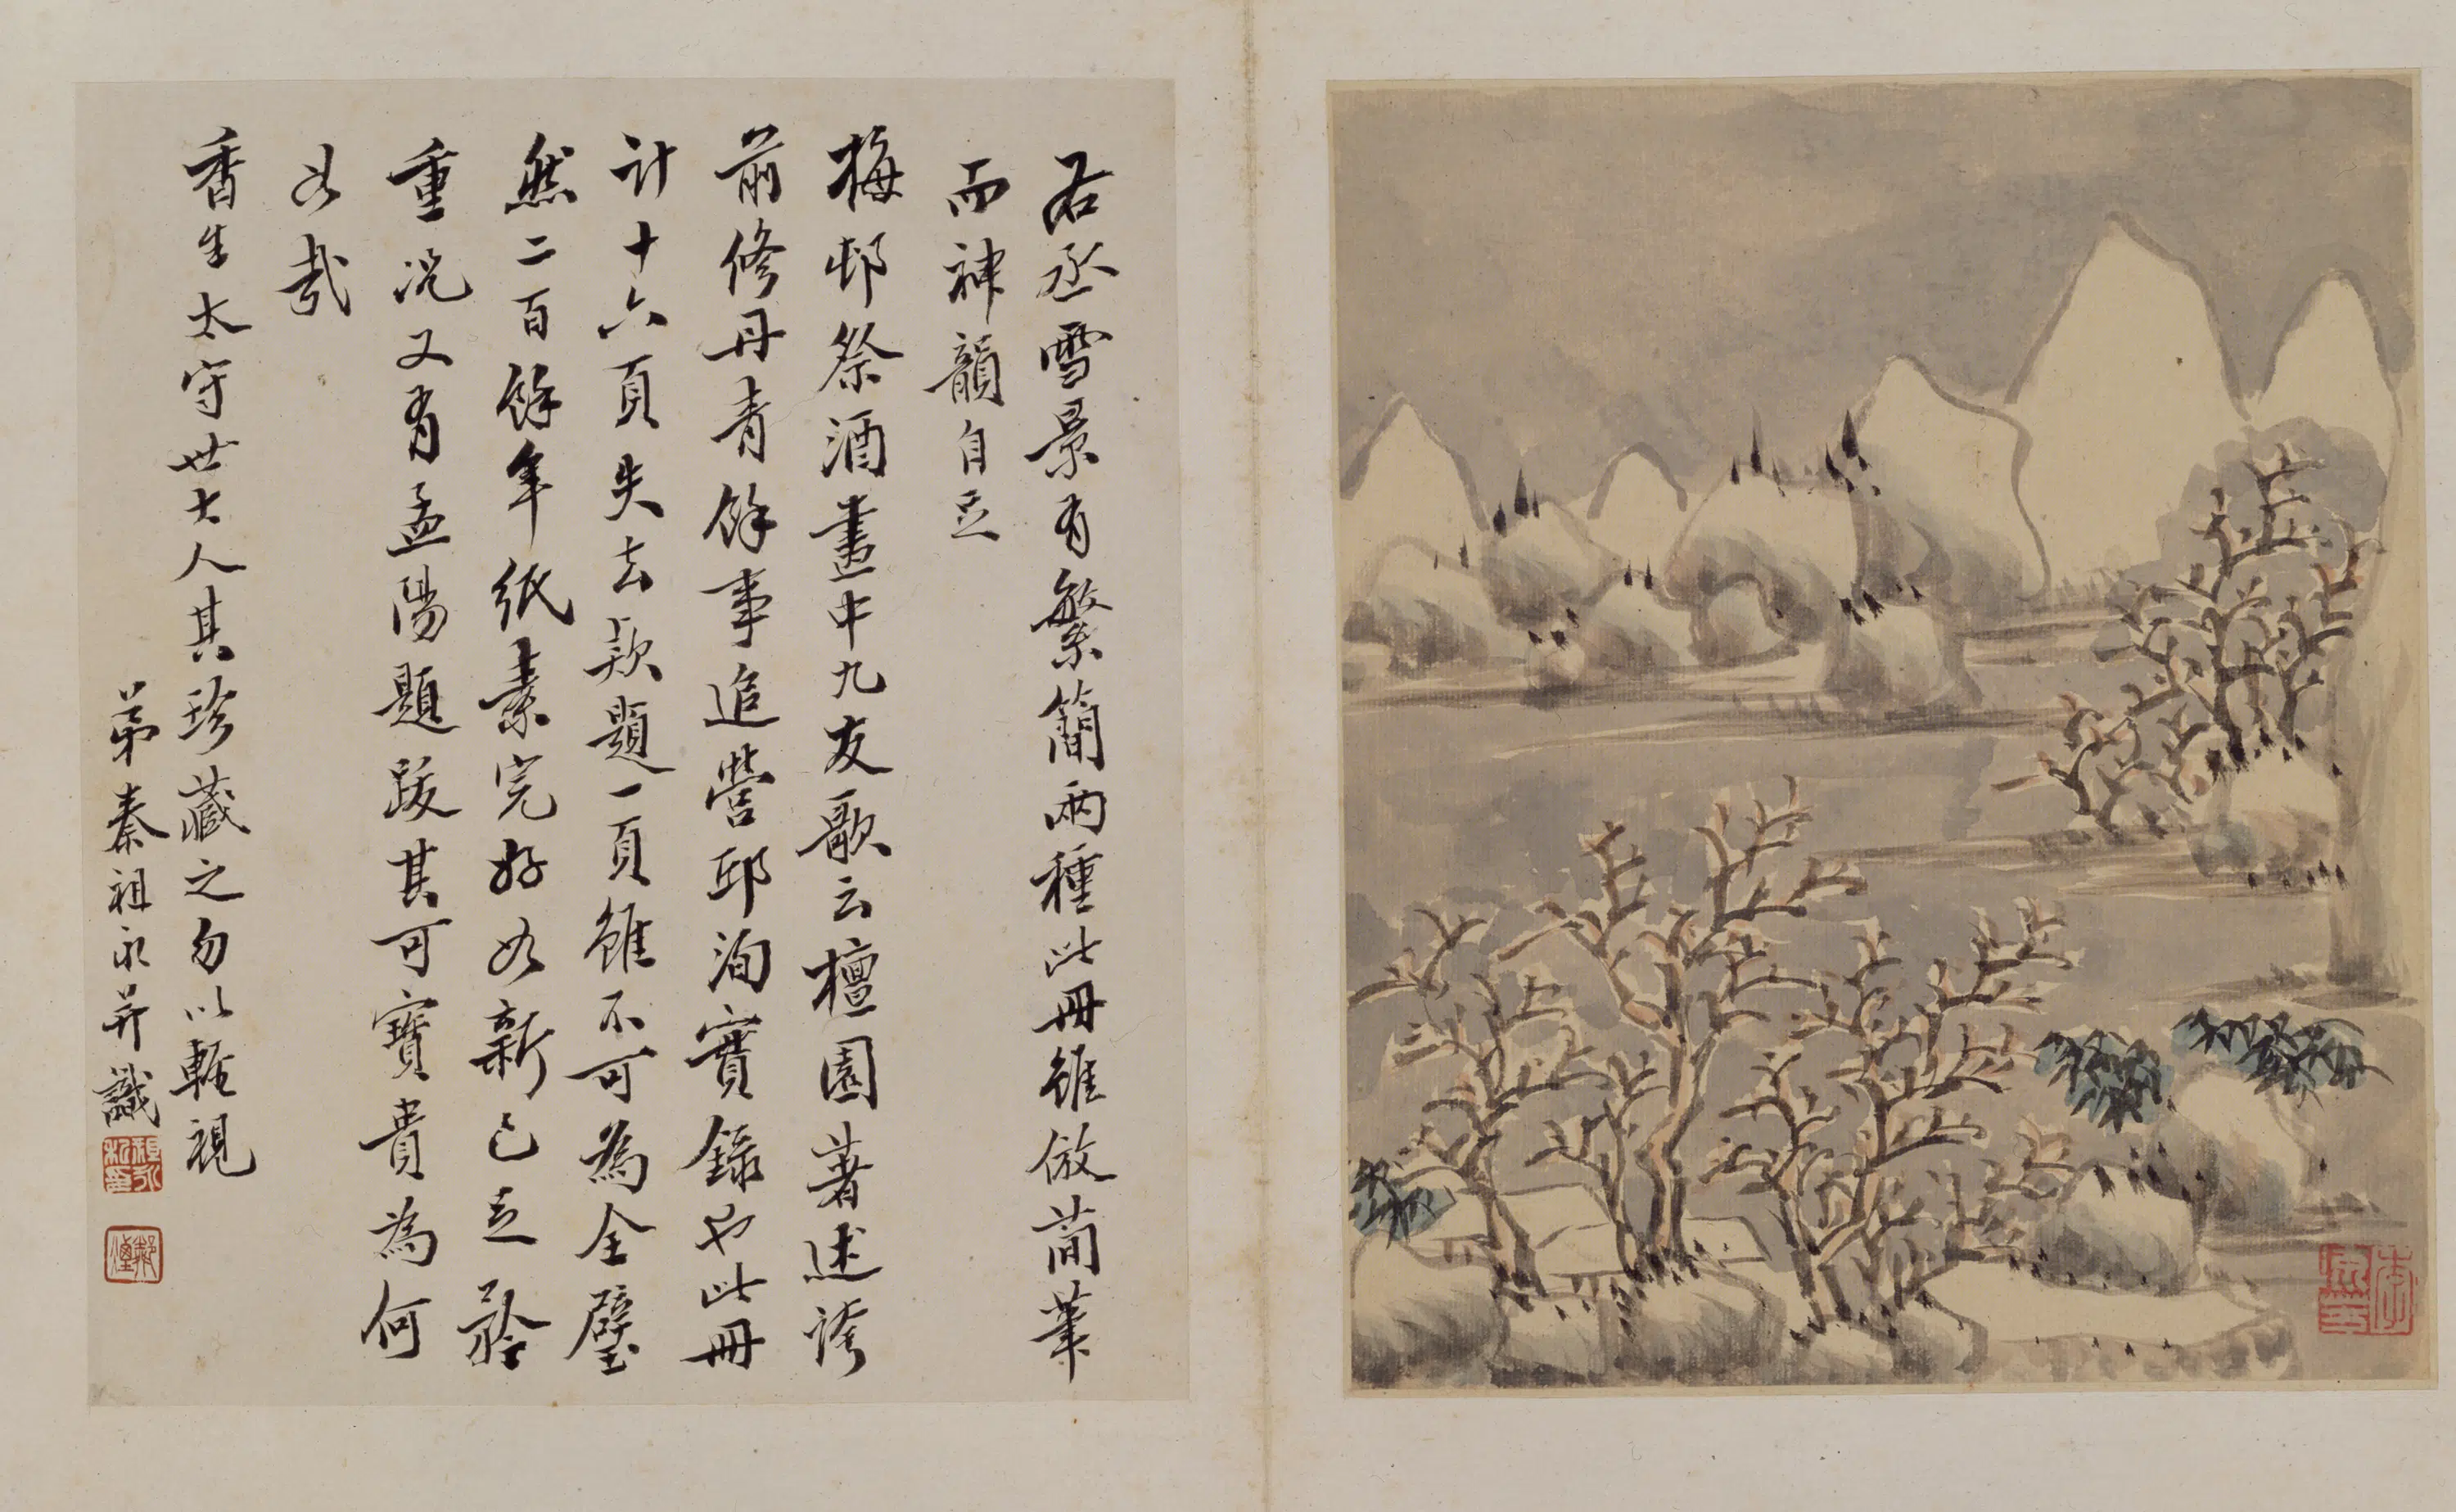 右丞雪景有繁簡兩種此冊雖倣簡筆
而神韻自足
梅邨祭酒畫中九友歌云檀園著述誇
前修丹青餘事追營邱洵實錄也此冊
計十六頁失去款題一頁雖不可為全璧
然二百餘年紙素完好如新已足矜
重況又有孟陽題跋其可寶貴為何
如哉
香生太守世大人其珍藏之勿以輕視
弟秦祖永并識
祖永私印